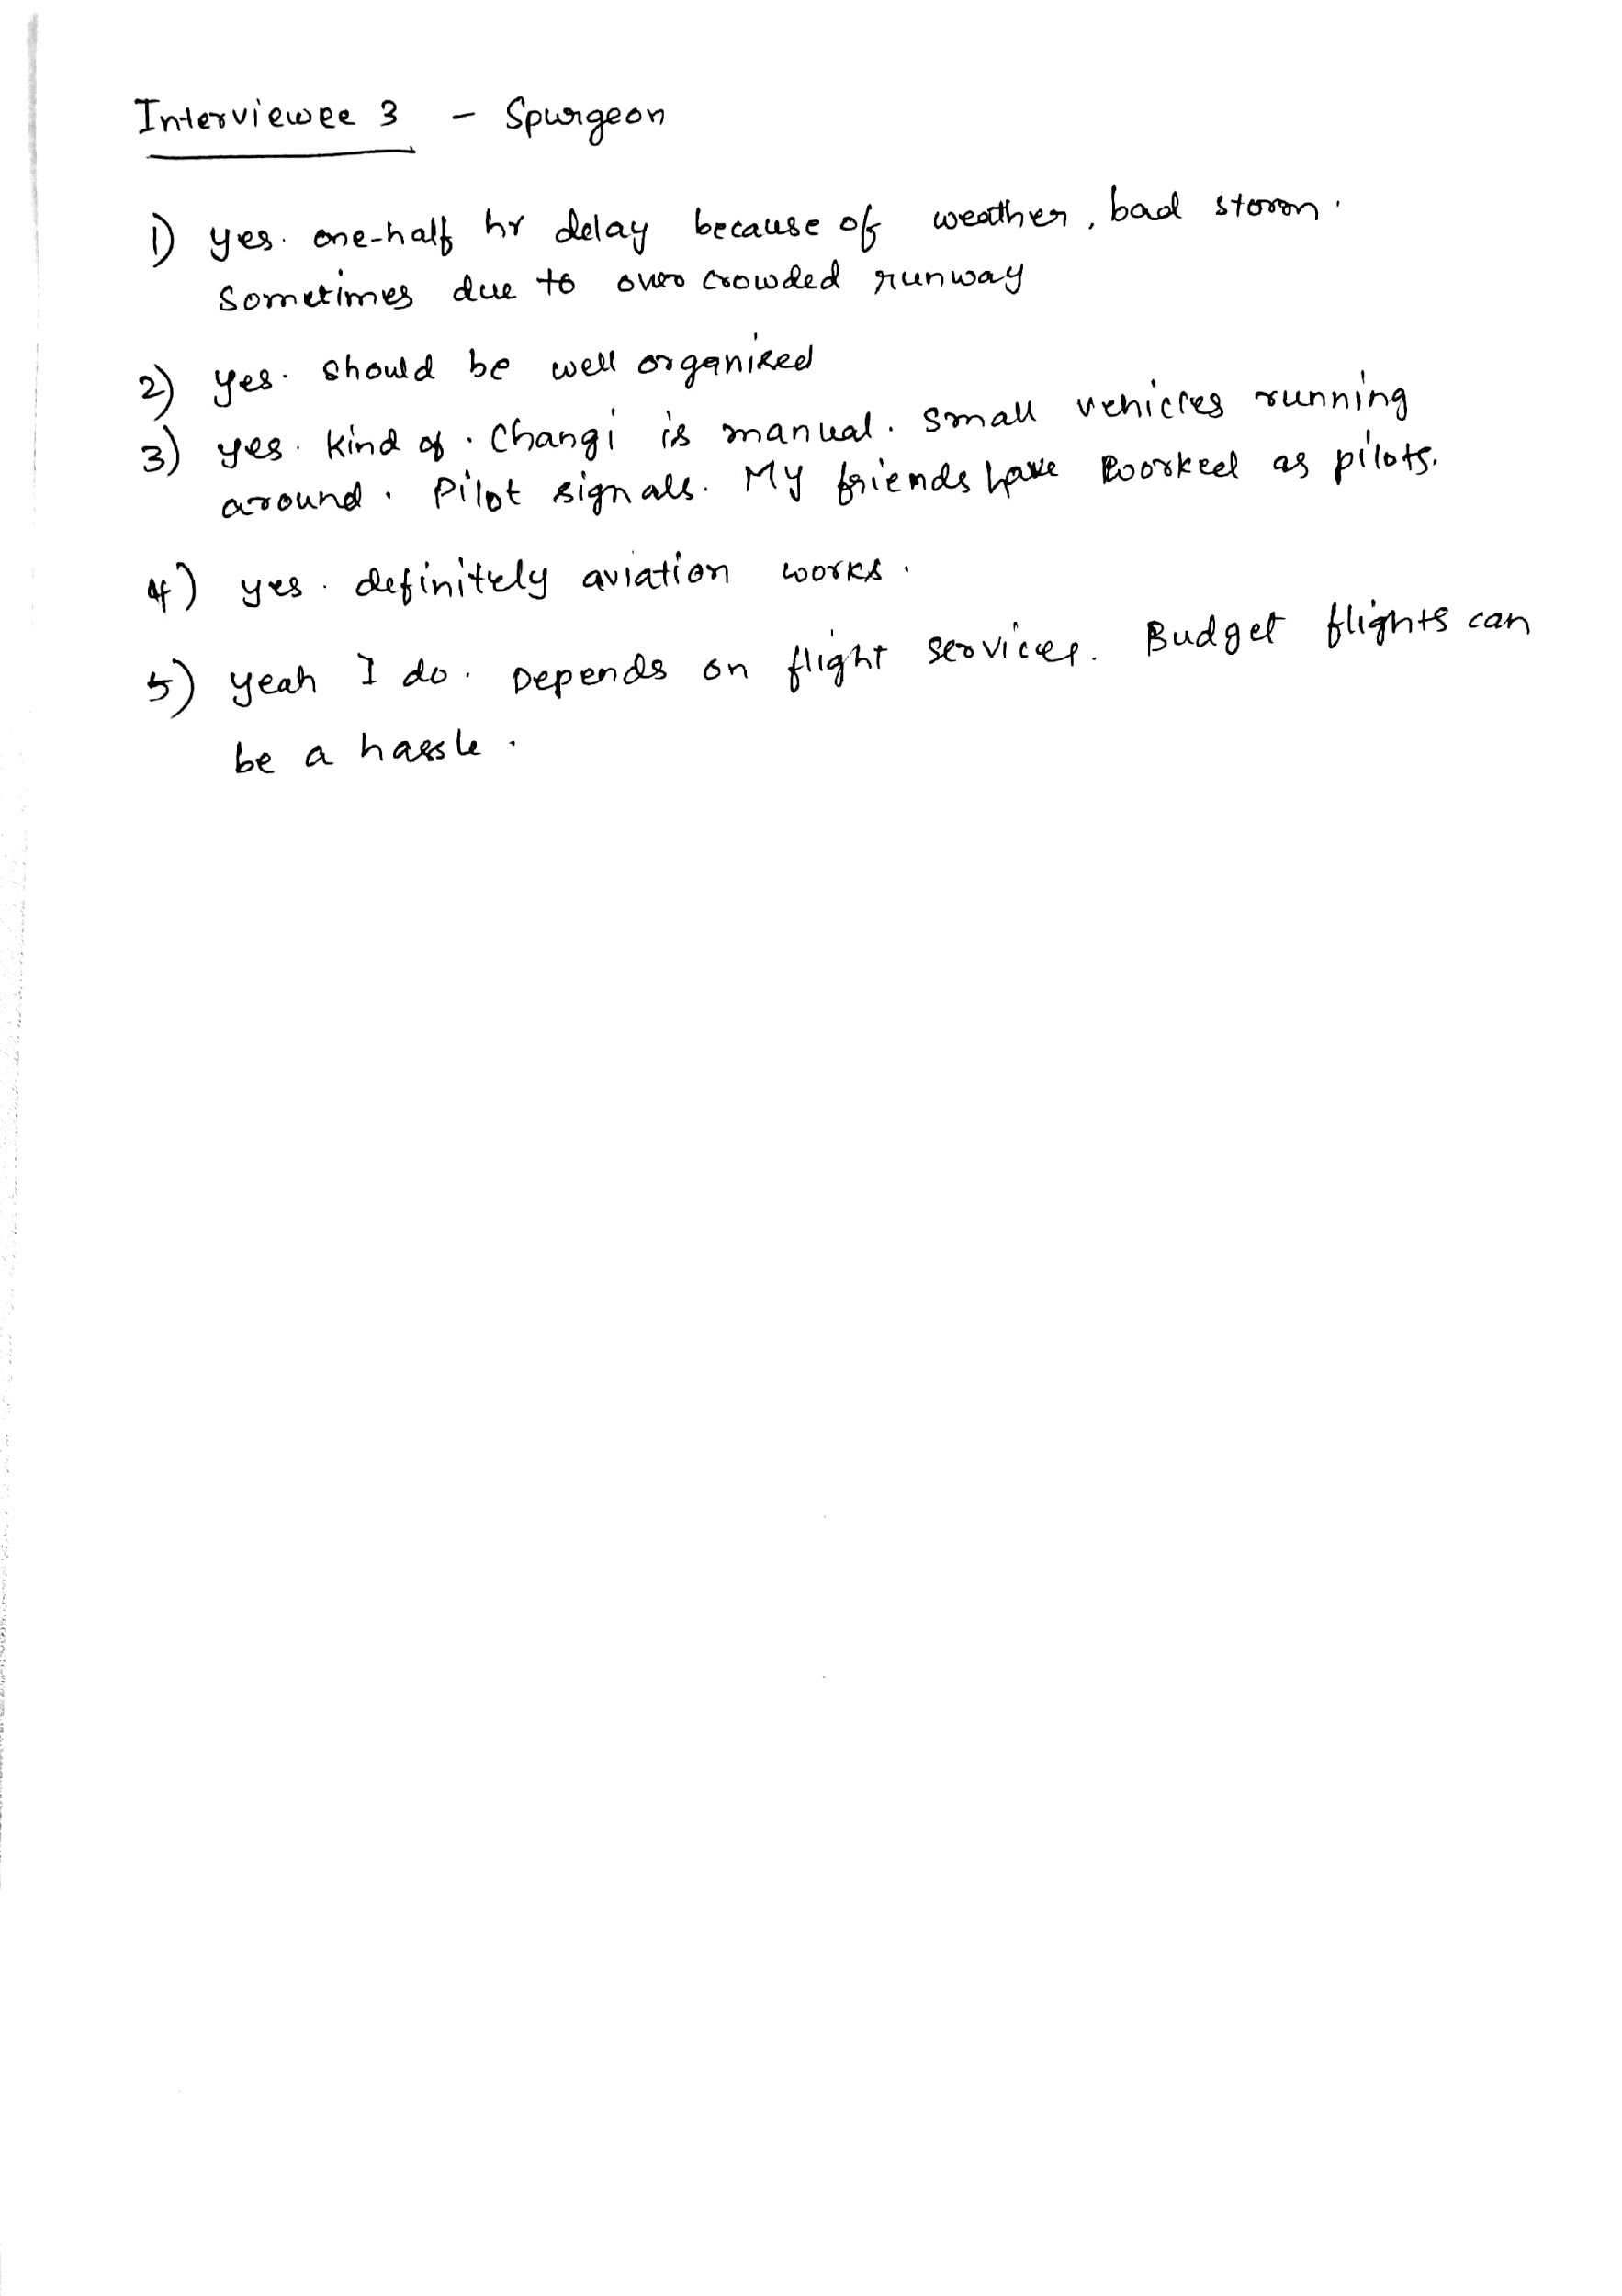 Interviewee 3 - Spurgeon
1) yes. one-half hr delay because of weather, bad storm.
Sometimes due to over crowded runway
2) yes. should be well organized
3) yes. kind of. Changi is manual. small vehicles running
around. Pilot signals. My friends have worked as pilots.
4) yes. definitely aviation works.
5) yeah I do. Depends on flight services. Budget flights can
be a hassle.